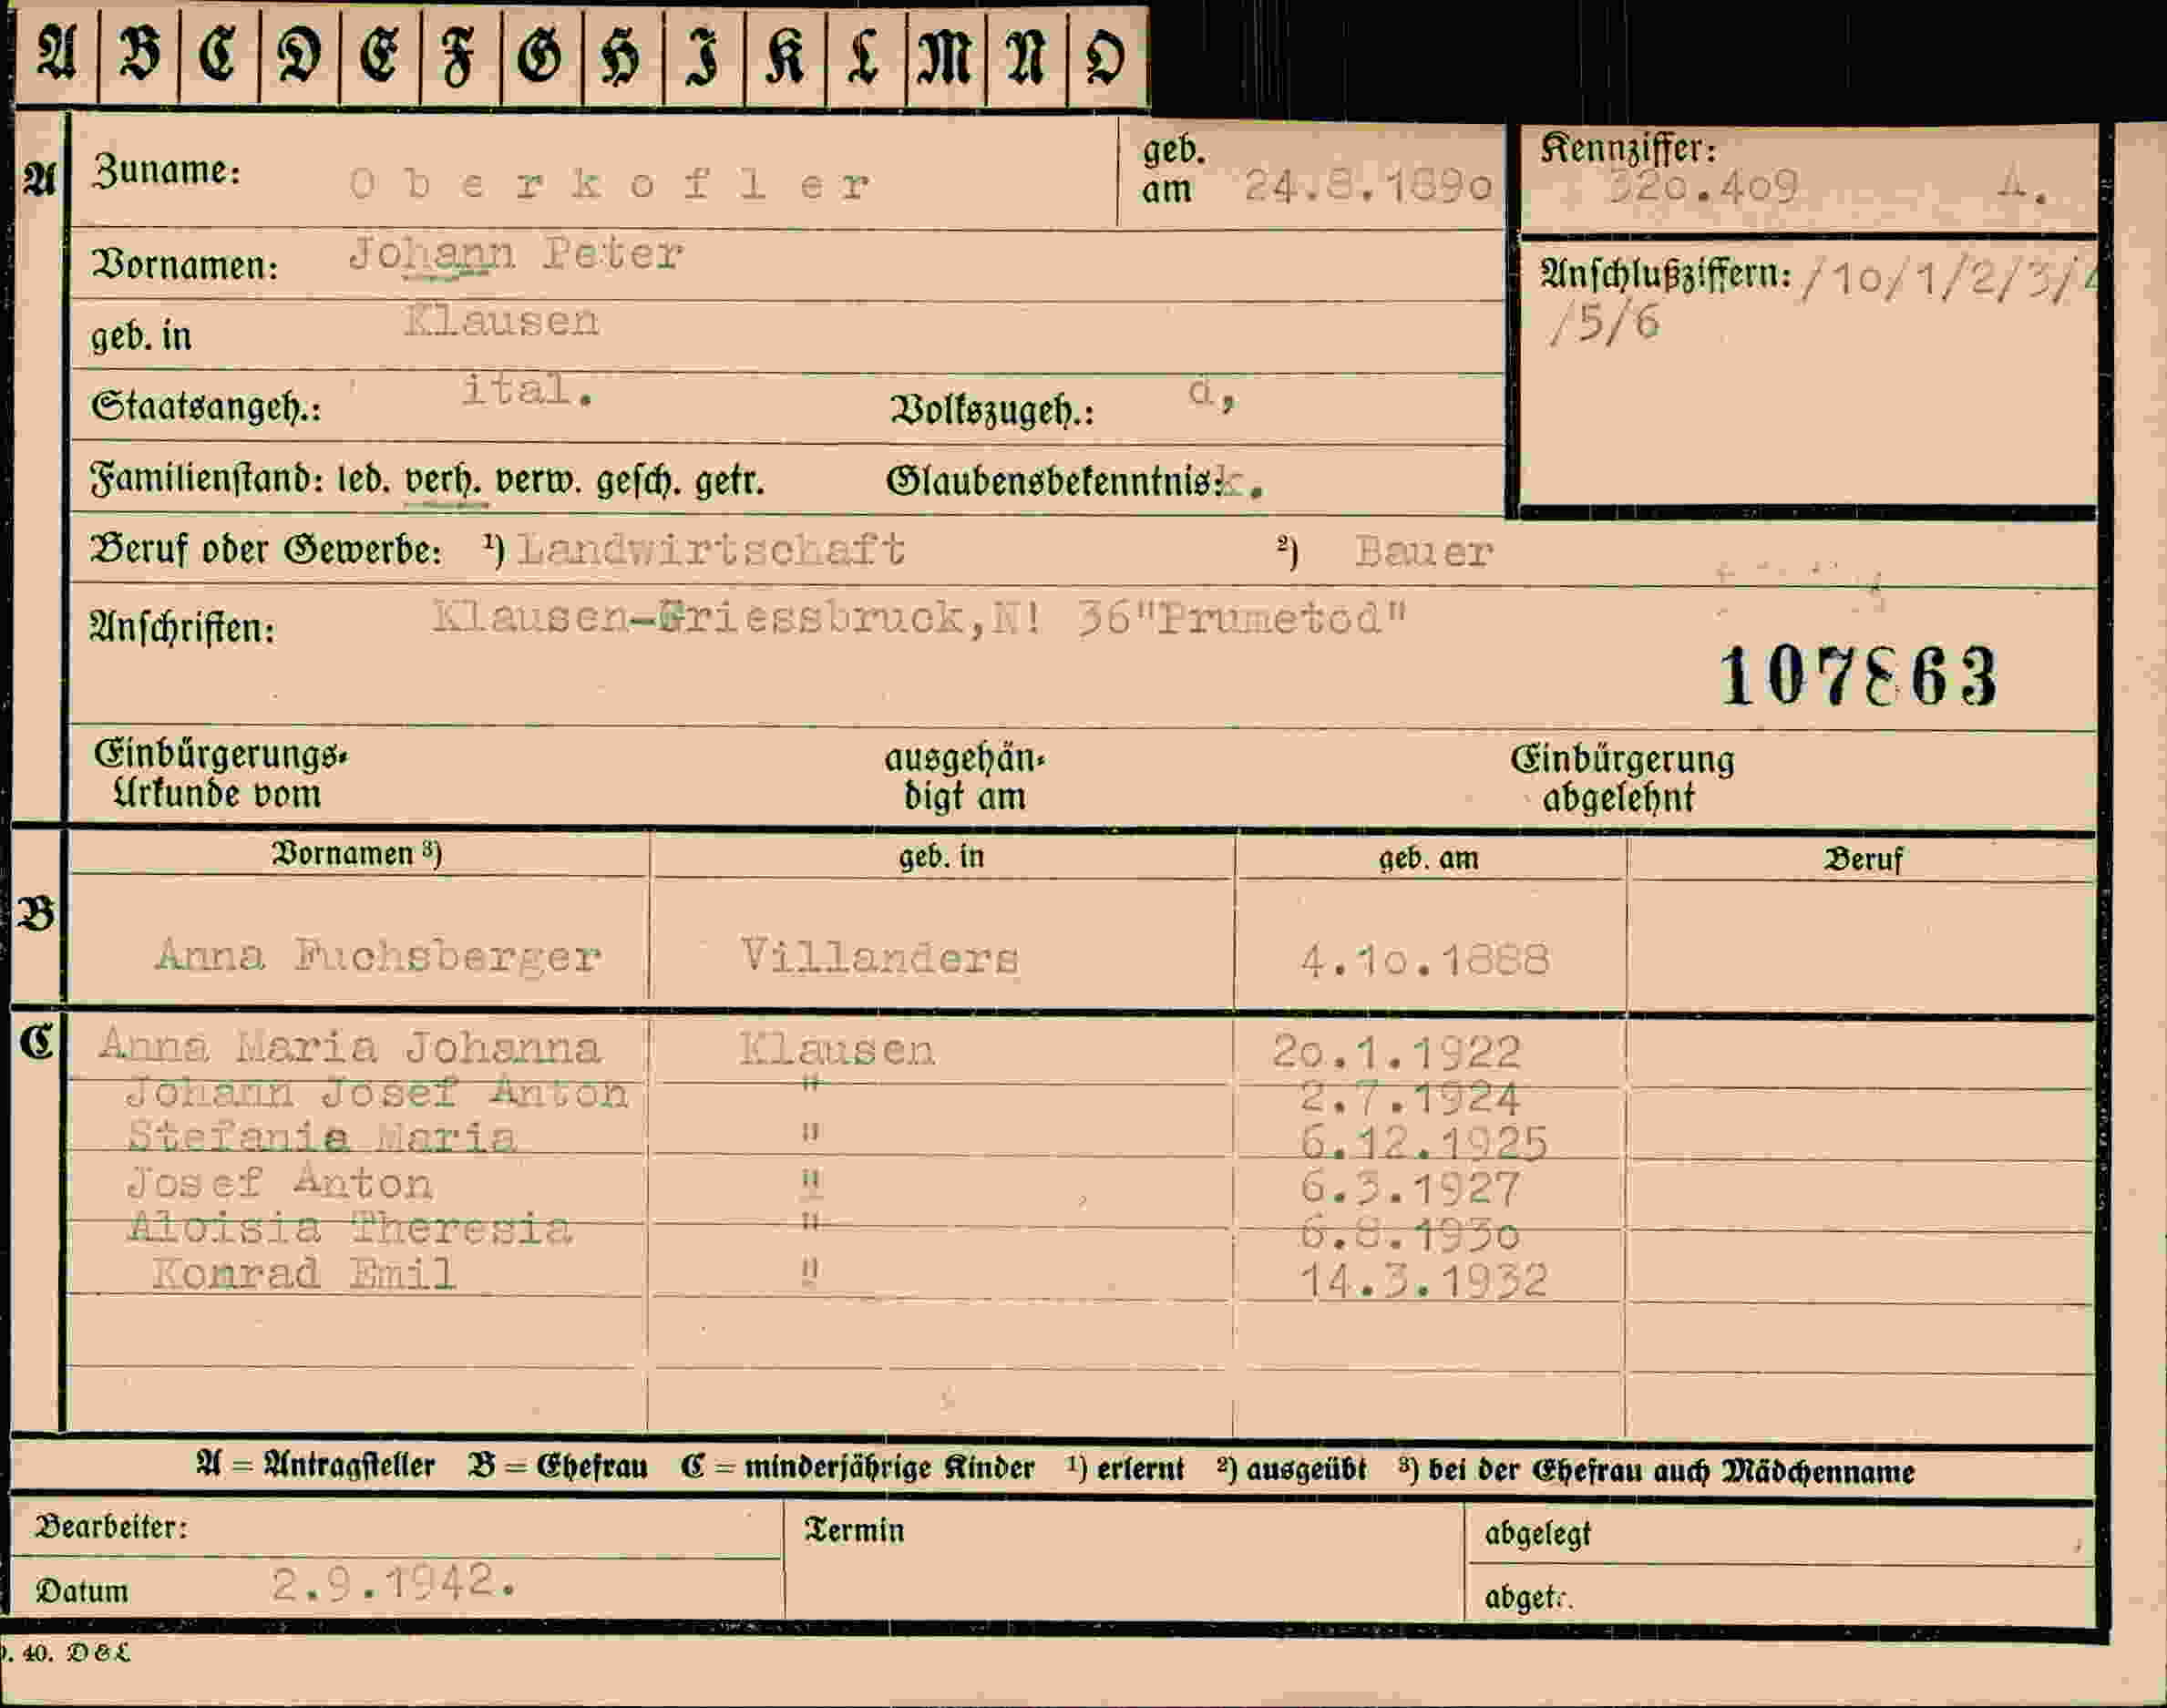 A B C D E F G H I K L M N O
A Zuname: Oberkofler geb. am 24.8.1890 Kennziffer: 320.409 A.
Vornamen: Johann Peter
Anschlußziffern: /10/1/2/3/4
/5/6
geb. in Klausen
Staatsangeh.: ital. Volkszugeh.: d,
Familienstand: led. verh. verw. gesch. getr. Glaubensbekenntnis: k.
Beruf oder Gewerbe: ¹) Landwirtschaft ²) Bauer
Anschriften: Klausen-Griessbruck, N! 36 "Prumetod"
107863
Einbürgerungs-
Urkunde vom
ausgehän-
digt am
Einbürgerung
abgelehnt
Vornamen ³) geb. in geb. am Beruf
B Anna Fuchsberger Villanders 4.10.1888
C Anna Maria Johanna Klausen 20.1.1922
Johann Josef Anton " 2.7.1924
Stefanie Maria " 6.12.1925
Josef Anton " 6.3.1927
Aloisia Theresia " 6.8.1930
Konrad Emil " 14.3.1932
A = Antragsteller B = Ehefrau C = minderjährige Kinder ¹) erlernt ²) ausgeübt ³) bei der Ehefrau auch Mädchenname
Bearbeiter: Termin abgelegt
Datum 2.9.1942. abgetr.
40. D&L